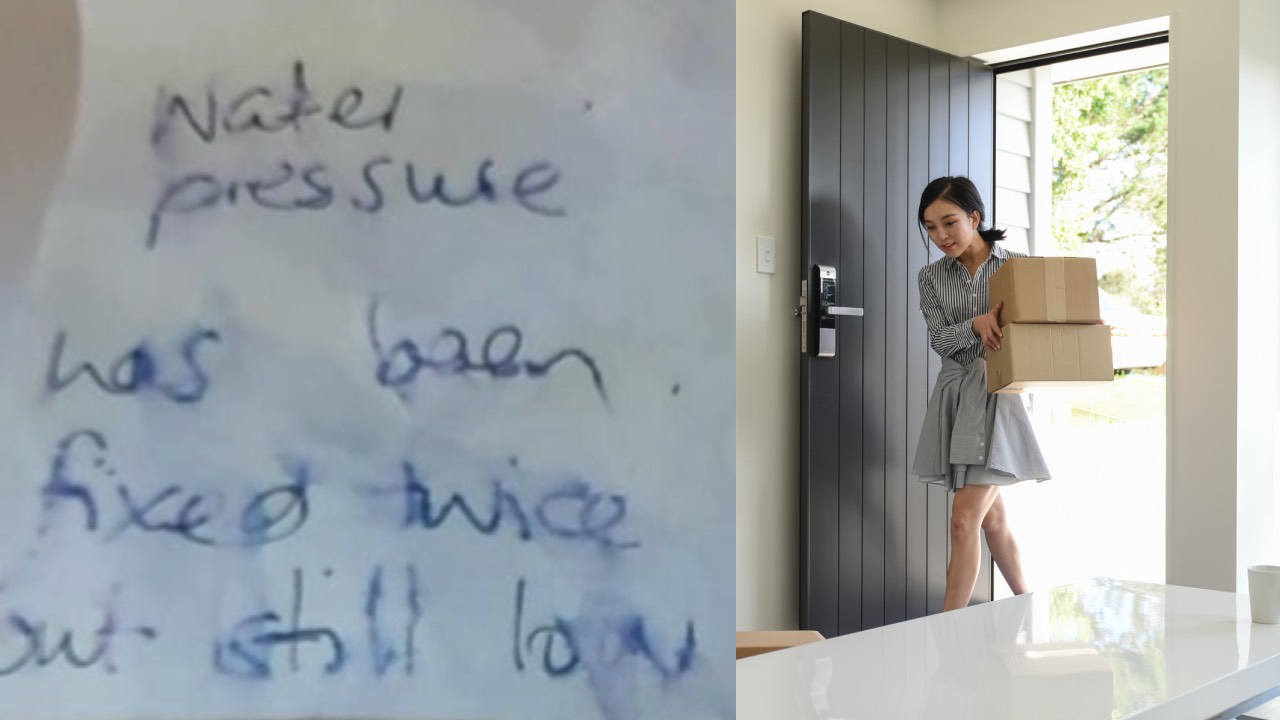 Water
pressure
has been.
fixed twice
but still low